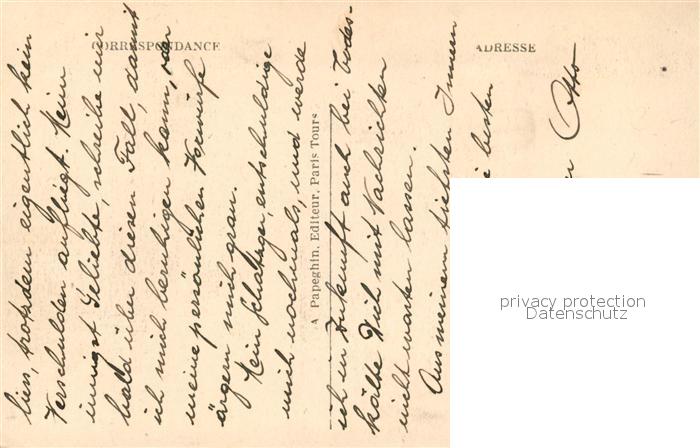 CORRESPONDANCE
ADRESSE
liess, trotzdem eigentlich kein
Verschulden aufliegt. Mein
innigst Geliebte, schreibe mir
bald über diesen Fall, damit
ich mich beruhigen kann, den
meine persönlichen Vorwürfe
ärgern mich gran.
Mein Schatteger, entschuldige
mich nochmals, und werde
ich in Zukunft auch bei Todes-
kälte Dich mit Nachrichten
nicht warten lassen.
Aus meinem tiefsten Innern
besten
Otto
A Papeghin, Editeur, Paris Tours
privacy protection
Datenschutz